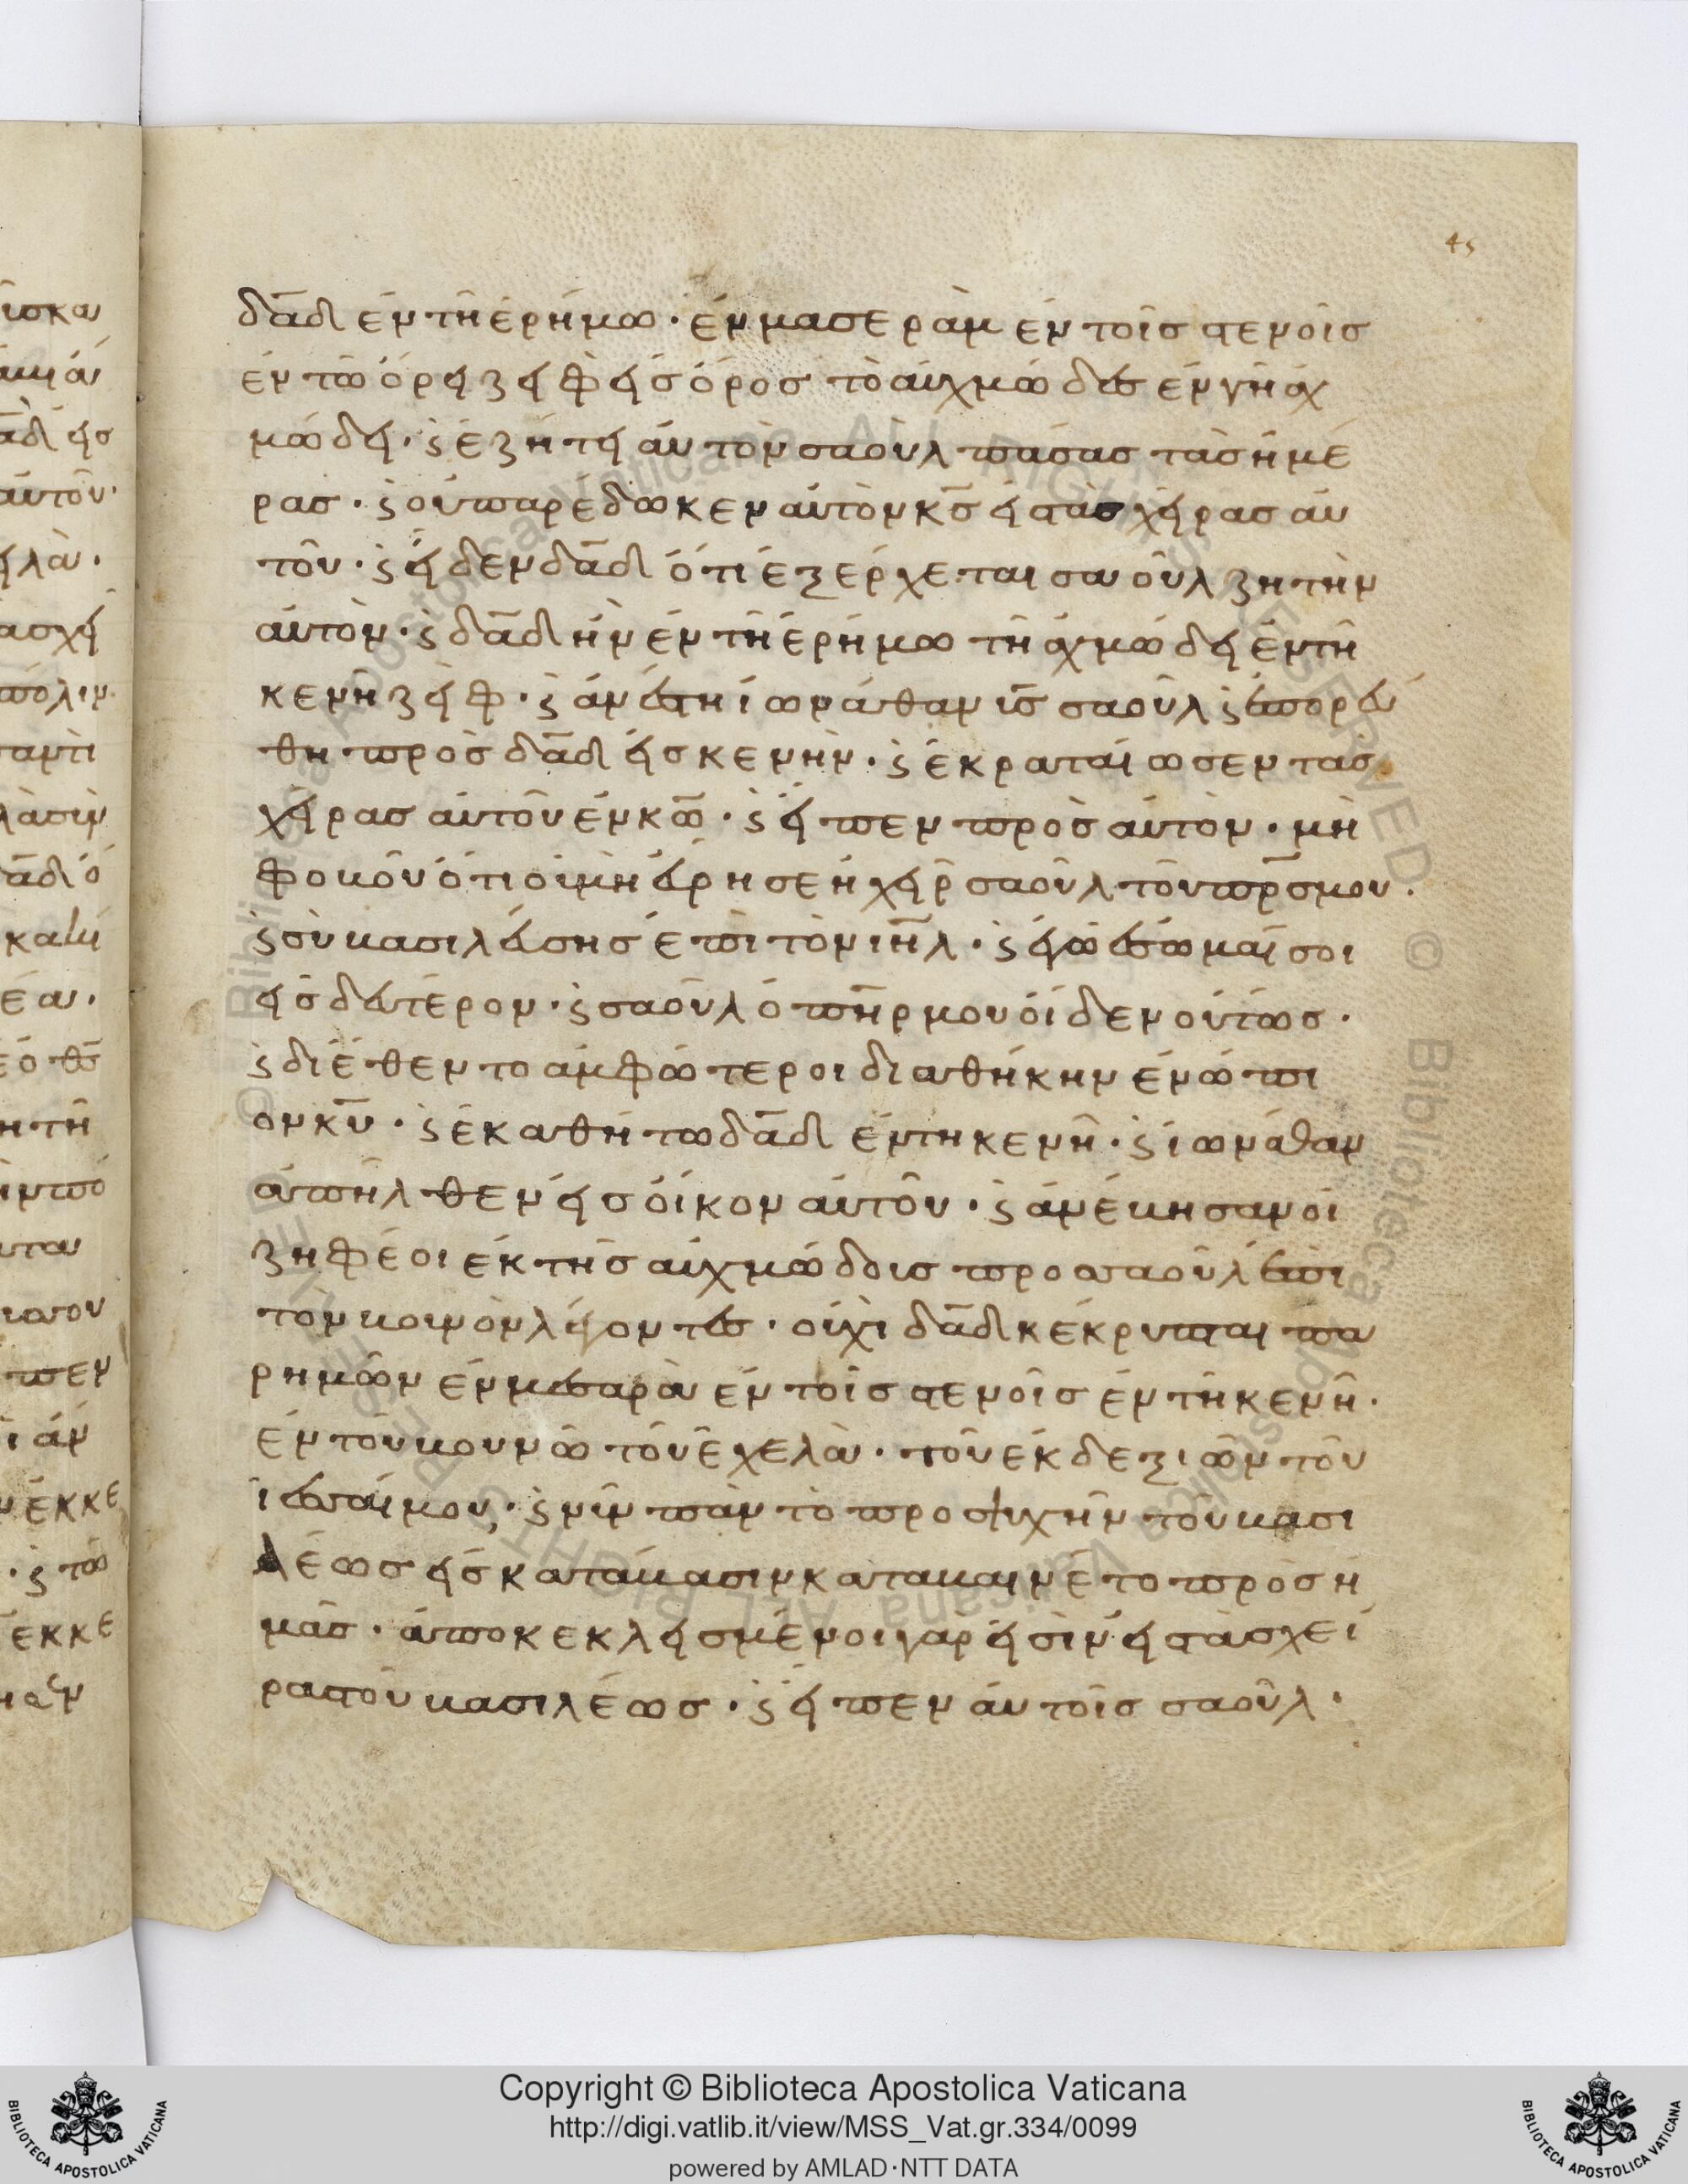 45
δα̅δ ἐν τῆ ἐρήμω · ἐν μασεραμ ἐν τοῖς στενοῖς
ἐν τῶ ὄρει ζεὶφ εἰς ὄρος τὸ αὐχμῶδες ἐν γῆ αὐχ
μώδει · ϗ ἐζήτει αὐτὸν σαοὺλ πάσας τὰς ἡμέ
ρας · ϗ οὐ παρέδωκεν αὐτὸν κ̅ς̅ εἰς τὰς χεῖρας αὐ
τοῦ · ϗ εἶδεν δα̅δ ὅτι ἐξέρχεται σαοῦλ ζητὴν
αὐτὸν · ϗ δα̅δ ἦν ἐν τῆ ἐρήμω τῆ αὐχμώδει ἐν τῆ
κενῆ ζεὶφ · ϗ ἀνέστη ἰωνάθαν υ̅ς̅ σαοῦλ ϗ ἐπορεύ
θη πρὸς δα̅δ εἰς κενὴν · ϗ ἐκραταίωσεν τὰς
χεῖρας αὐτοῦ ἐν κ̅ω̅ · ϗ εἶπεν πρὸς αὐτὸν · μὴ
φοβοῦ ὅτι οὐ μὴ εὕρη σε ἡ χεὶρ σαοῦλ τοῦ π̅ρ̅ς̅ μου ·
ϗ σὺ βασιλεύσης ἐπὶ τὸν ι̅η̅λ · ϗ ἐγὼ ἔσωμαί σοι
εἰς δεύτερον · ϗ σαοῦλ ὁ π̅η̅ρ μου οἶδεν οὕτως ·
ϗ διέθεντο ἀμφώτεροι διαθήκην ἐνώπι
ον κ̅υ̅ · ϗ ἐκαθήτω δα̅δ ἐν τῆ κενῆ · ϗ ἰωνάθαν
ἀπῆλθεν εἰς οἶκον αὐτοῦ · ϗ ἀνέβησαν οἱ
ζηφέοι ἐκ τῆς αὐχμώδους προς σαοῦλ ἐπὶ
τὸν βουνὸν λέγοντες · οὐχὶ δα̅δ κέκρυπται πα
ρ ημῶν ἐν μεσαρὰ ἐν τοῖς στενοῖς ἐν τῆ κενῆ ·
ἐν τοῦ βουνῶ τοῦ ἐχελὰ · τοῦ ἐκ δεξιῶν τοῦ
ἰεσσαίμου, · ϗ νῦν πὰν τὸ προς ψυχῆν τοῦ βασι
λέως εἰς κατάβασιν καταβαινέτο πρὸς ἡ
μᾶς · ἀποκεκλεισμένοι γὰρ εἰσὶν εἰς τὰς χεῖ
ρας τοῦ βασιλέως · ϗ εἶπεν αὐτοῖς σαοῦλ ·
Copyright © Biblioteca Apostolica Vaticana
http://digi.vatlib.it/view/MSS_Vat.gr.334/0099
powered by AMLAD·NTT DATA